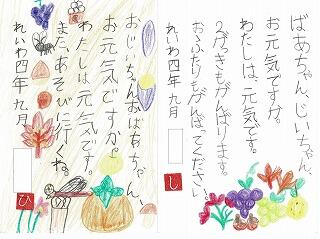 ばあちゃん、じいちゃん、
お元気ですか。
わたしは、元気です。
2がっきもがんばります。
おふたりもがんばってください。
れいわ四年 九月
し
おじいちゃんおばあちゃん、
お元気ですか。
わたしは元気です。
また、あそびに行くね。
れいわ四年 九月
ひ